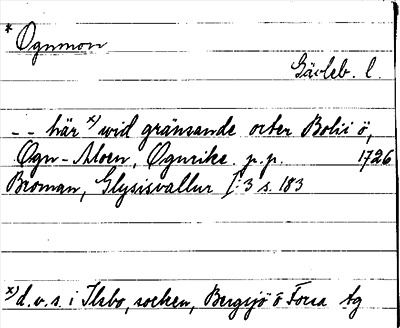 * Ognmon
Gävleb. l.
-- här x) wid gränsande orter Bolii ö,
Ogn-Moen, Ognrike. p.p. 1726
Broman, Glysisvallur I:3 s. 183
x) d.v.s. i Ilsbo, socken, Bergsjö o Forsa tg